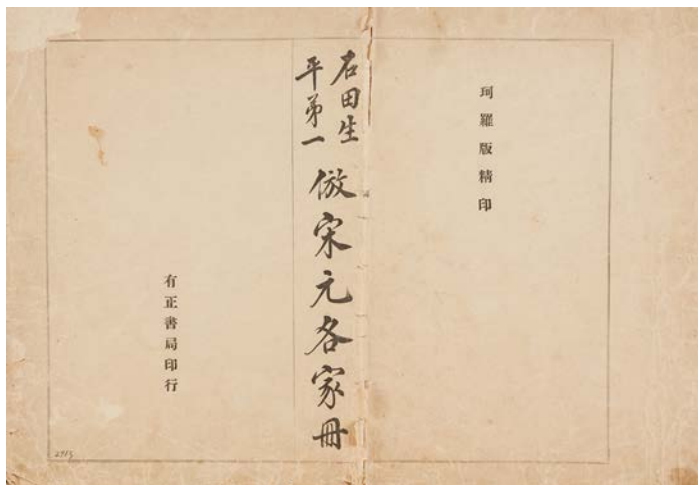 珂羅版精印
石田生
平第一
倣宋元各家冊
有正書局印行
2913